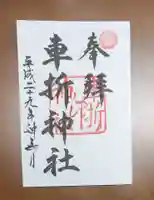 奉拝
車折神社
平成二十九年神無月